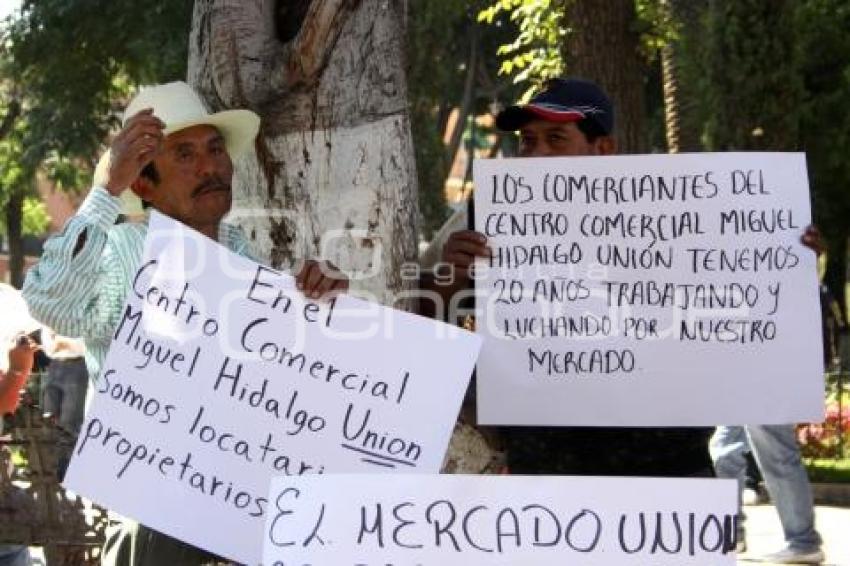 En el
Centro Comercial
Miguel Hidalgo Union
somos locatari
propietarios
LOS COMERCIANTES DEL
CENTRO COMERCIAL MIGUEL
HIDALGO UNIÓN TENEMOS
20 AÑOS TRABAJANDO Y
LUCHANDO POR NUESTRO
MERCADO.
EL MERCADO UNION
agencia
enfoque